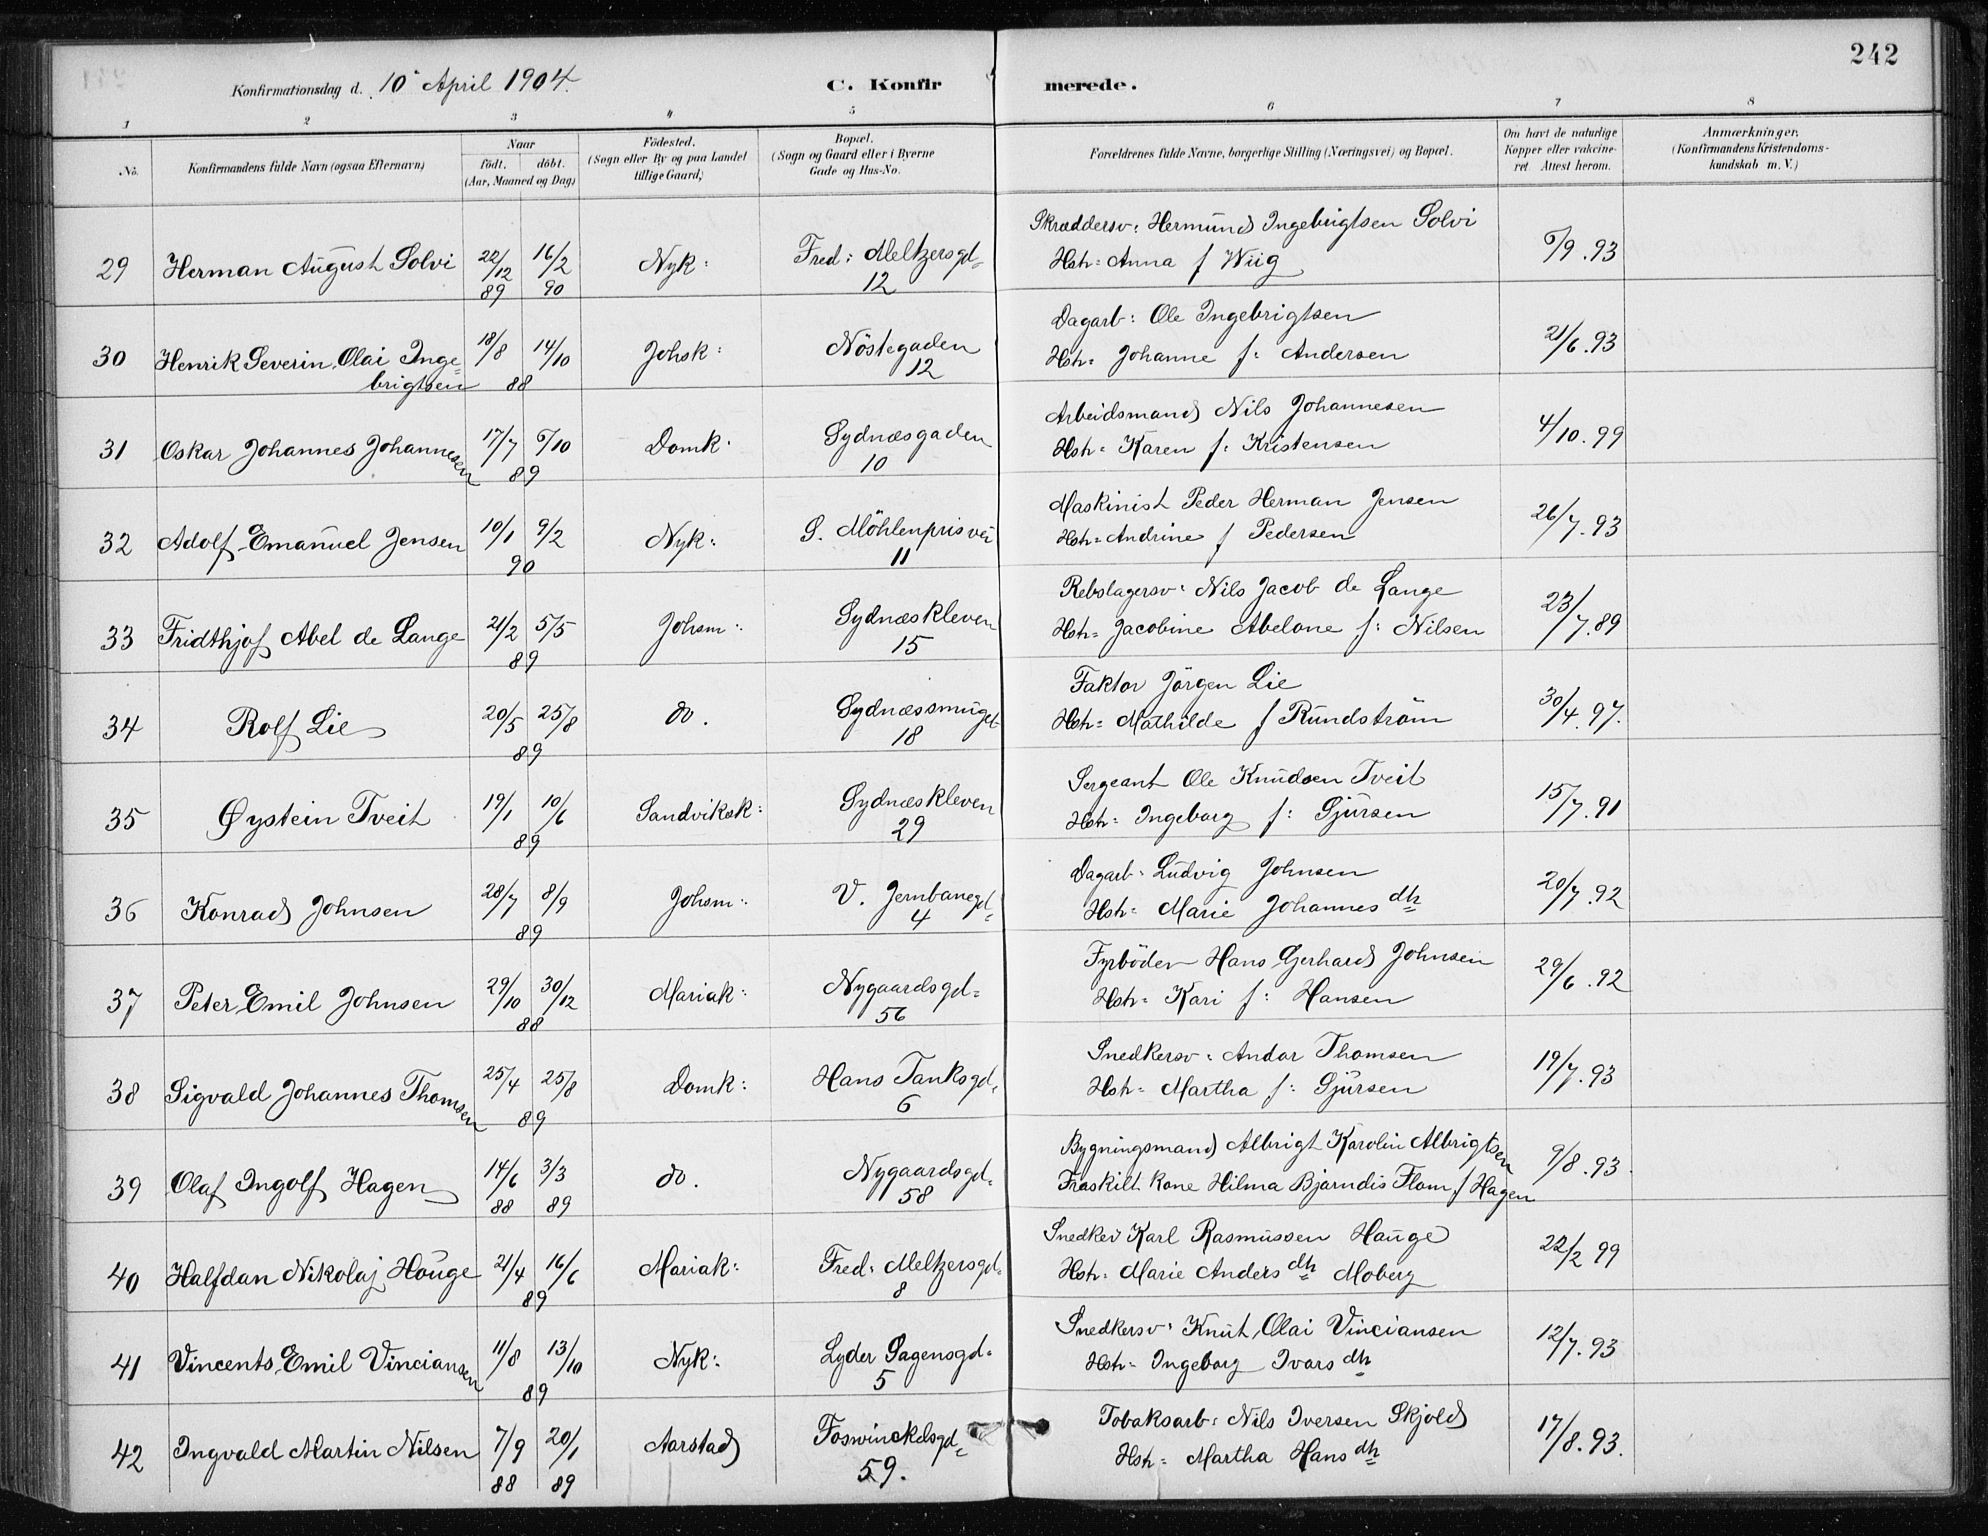 242
Konfirmationsdag d. 10 April 1904. C. Konfirmerede.
1 2 3 4 5 6 7 8
No. Konfirmandens fulde Navn (ogsaa Efternavn) Naar födt. döbt. (Aar, Maaned og Dag) Födested. (Sogn eller By og paa Landet tillige Gaard) Bopæl. (Sogn og Gaard eller i Byerne Gade og Hus-No. Forældrenes fulde Navne, borgerlige Stilling (Næringsvei) og Bopæl. Om havt de naturlige Kopper eller vakcineret. Attest herom. Anmærkninger. (Konfirmandens Kristendomskundskab m. V.)
29 Herman August Solvi 22/12 89 16/2 90 Nyk: Fred: Meltzersgd= 12 Skræddersv: Hermund Ingebrigtsen Solvi
Hstr= Anna f Wiig 6/9.93
30 Henrik Severin Olai Inge=brigtsen 18/8 14/10 88 Johsk: Nöstegaden 12 Dagarb: Ole Ingebrigtsen
Hstr= Johanne f: Andersen 21/6.93
31 Oskar Johannes Johannesen 17/7 6/10 89 Domk: Sydnæsgaden 10 Arbeidsmand Nils Johannesen
Hstr= Karen f: Kristensen 4/10.99
32 Adolf Emanuel Jensen 10/1 9/2 90 Nyk: S. Möhlenprisvei 11 Maskinist Peder Herman Jensen
Hstr= Andrine f Pedersen 26/7.93
33 Fridthjof Abel de Lange 21/2 5/5 89 Johsm: Sydnæskleven 15 Rebslagersv: Nils Jacob de Lange
Hstr= Jacobine Abelone f: Nilsen 23/7.89
34 Rolf Lie 20/5 25/8 89 do. Sydnæssmuget 18 Faktor Jörgen Lie
Hstr= Mathilde f Rundström 30/4.97.
35 Øystein Tveit 19/1 10/6 89 Sandviksk: Sydnæskleven 29 Sergeant Ole Knudsen Tveit
Hstr: Ingeborg f: Gjürsen 15/7.91
36 Konrad Johnsen 28/7 8/9 89 Johsm: V. Jernbanegd= 4 Dagarb: Ludvig Johnsen
Hstr= Marie Johannesdtr 20/7.92
37 Peter Emil Johnsen 29/10 30/12 88 Mariak: Nygaardsgd= 56 Fyrböder Hans Gerhard Johnsen
Hstr= Kari f: Hansen 29/6.92
38 Sigvald Johannes Thomsen 25/4 25/8 89 Domk: Hans Tanksgd= 6 Snedkersv: Andor Thomsen
Hstr= Martha f: Gjürsen 19/7.93
39 Olaf Ingolf Hagen 14/6 88 3/3 89 do. Nygaardsgd= 58 Bygningsmand Albrigt Karolin Albrigtsen
Fraskilt kone Hilma Bjarndis Flom f Hagen 9/8.93.
40 Halfdan Nikolaj Houge 21/4 16/6 89 Mariak: Fred: Meltzersgd= 8 Snedker Karl Rasmussen Hauge
Hstr: Marie Andersdtr Moberg 22/2 99
41 Vincents Emil Vinciansen 11/8 13/10 89 Nyk: Lyder Sagensgd= 5 Snedkersv: Knut Olai Vinciansen
Hstr= Ingeborg Ivarsdtr 12/7.93
42 Ingvald Martin Nilsen 7/9 88 20/1 89 Aarstad Foswinckelsgd= 59. Tobaksarb: Nils Iversen Skjold
Hstr= Martha Hansdtr 17/8.93.